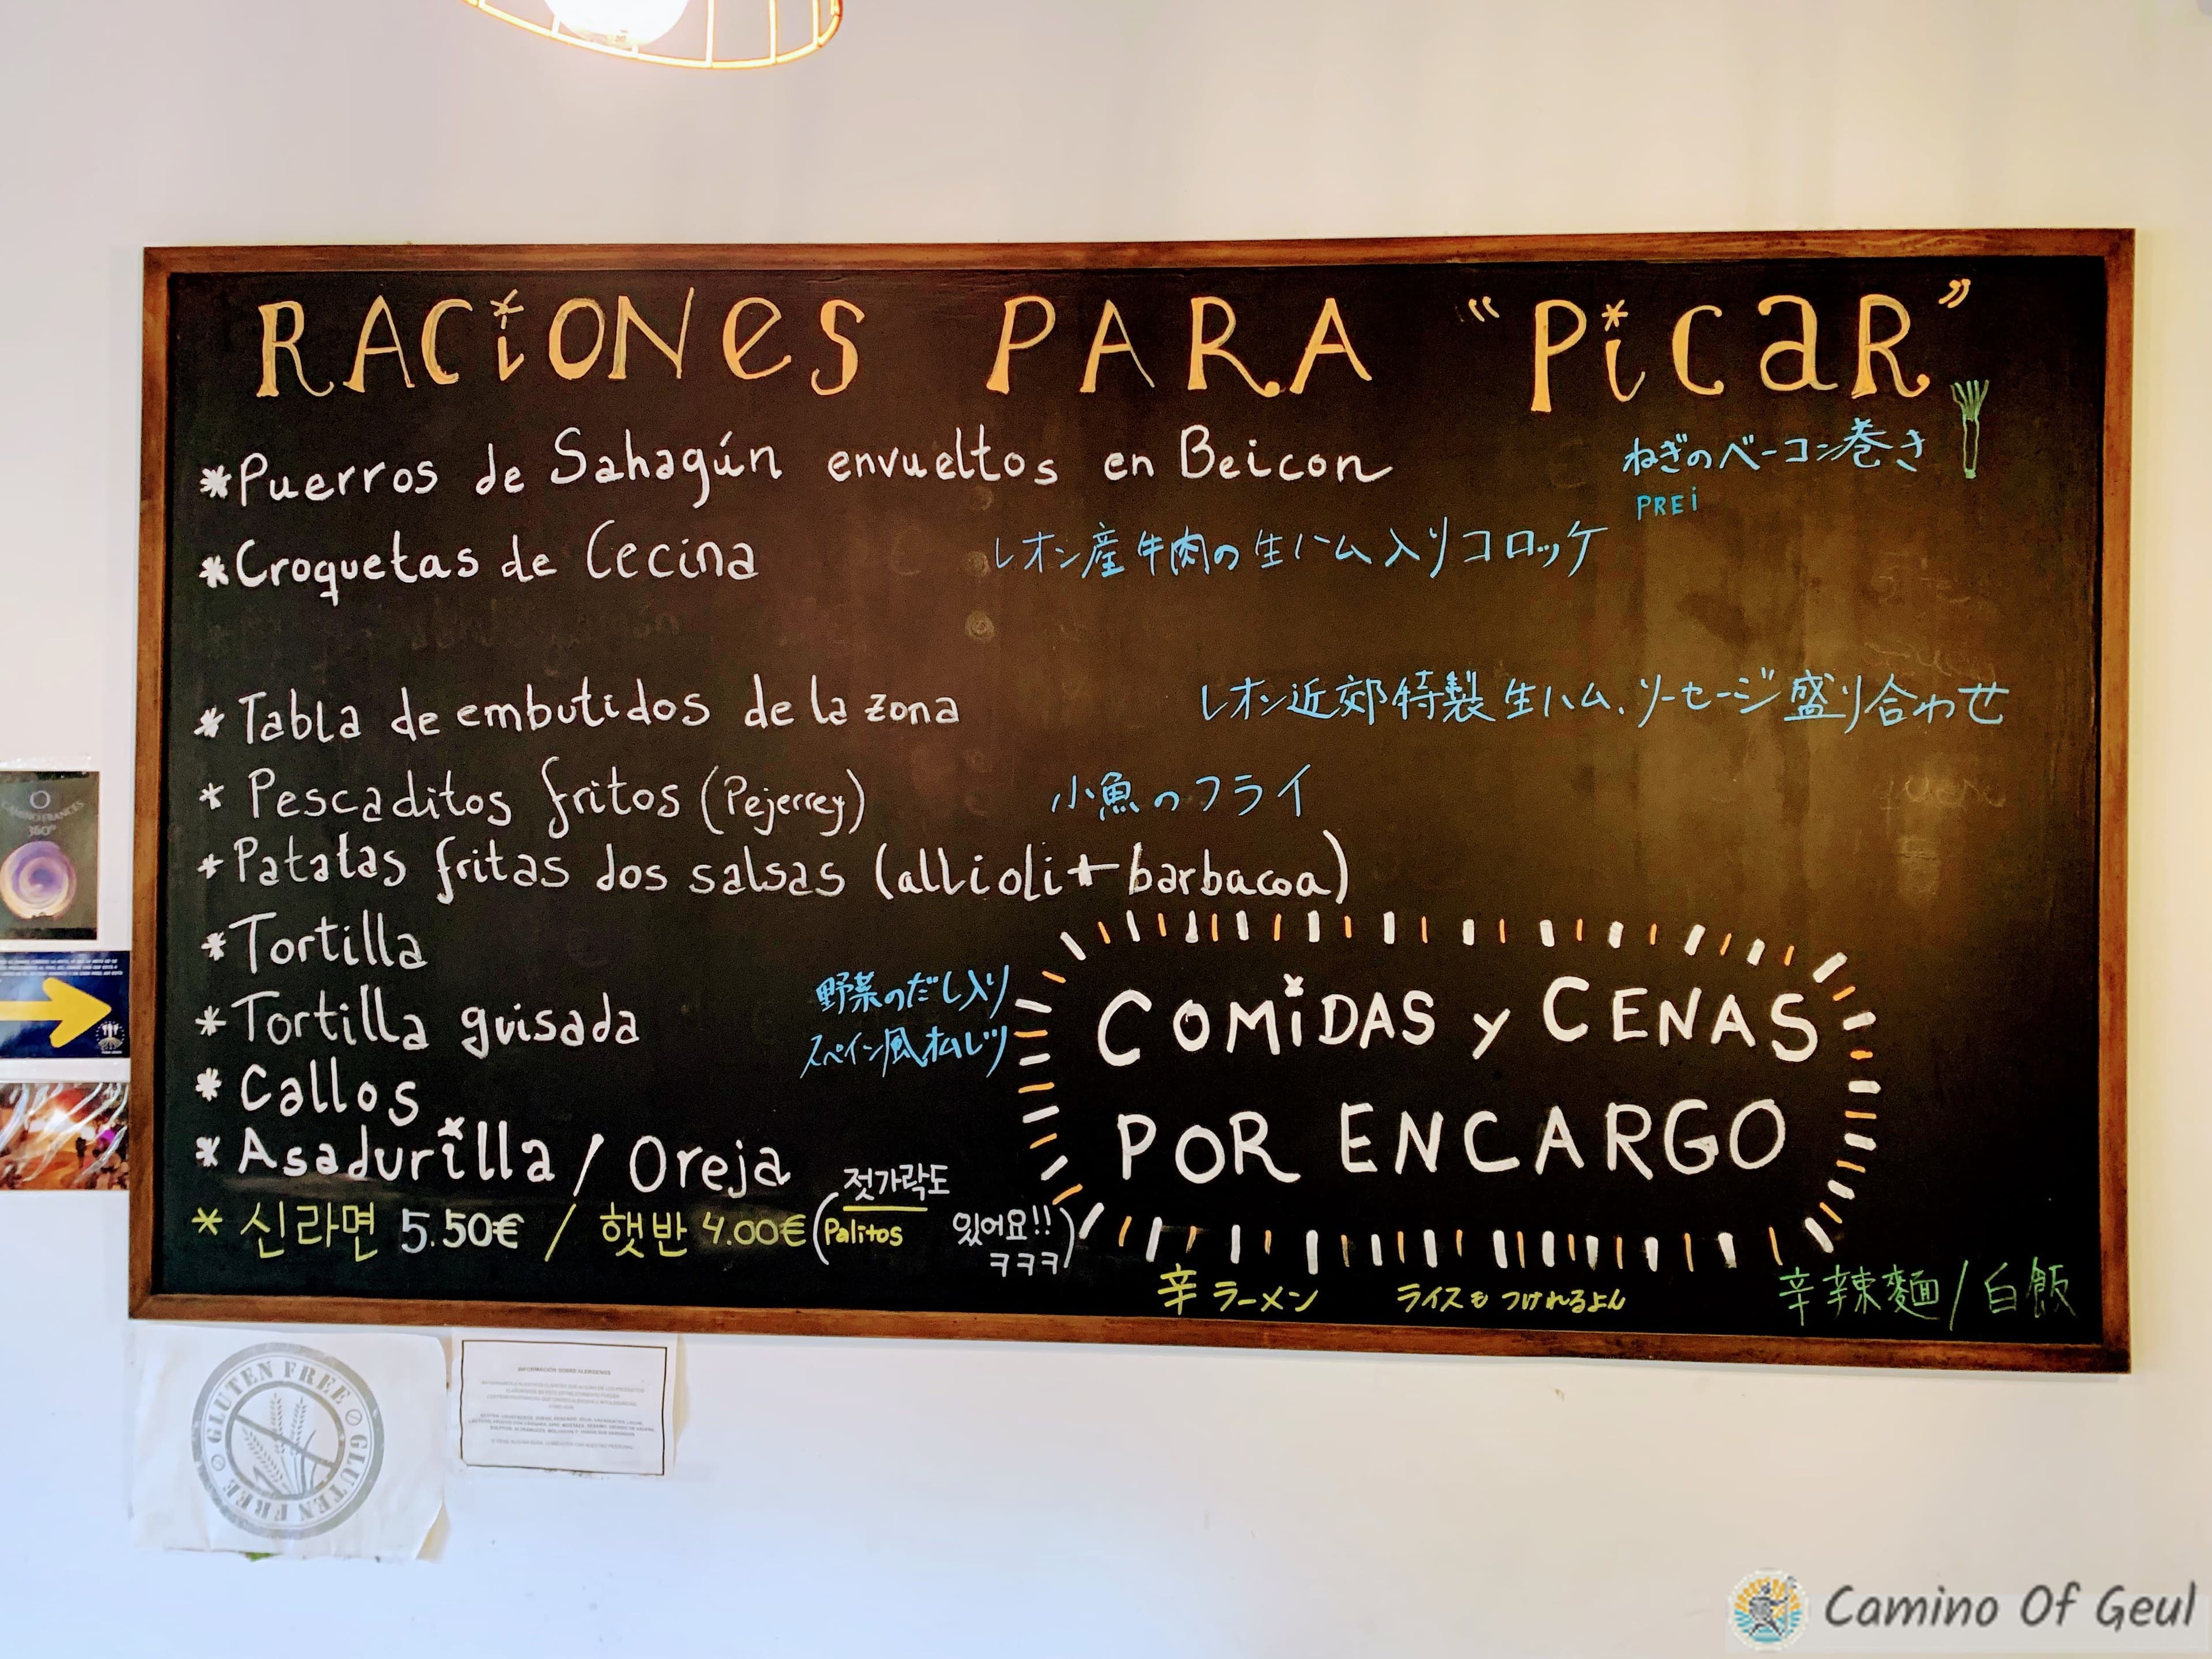 RACiONes PARA "PiCaR"
*Puerros de Sahagún envueltos en Beicon
ねぎのベーコン巻き
PREi
*Croquetas de Cecina
レオン産牛肉の生ハム入りコロッケ
*Tabla de embutidos de la zona
レオン近郊特製生ハム、ソーセージ盛り合わせ
* Pescaditos fritos (Pejerrey)
小魚のフライ
*Patatas fritas dos salsas (allioli+barbacoa)
*Tortilla
*Tortilla guisada
野菜のだし入り
スペイン風オムレツ
*Callos
*Asadurilla / Oreja
* 신라면 5.50€ / 햇반 4.00€ (젓가락도
Palitos
있어요!!
ㅋㅋㅋ)
COMiDAS y CENAS
POR ENCARGO
辛ラーメン ライスもつけれるよん
辛辣麵/白飯
CAMINO FRANCES
360º
GLUTEN FREE
GLUTEN FREE
INFORMACIÓN SOBRE ALÉRGENOS
Camino Of Geul